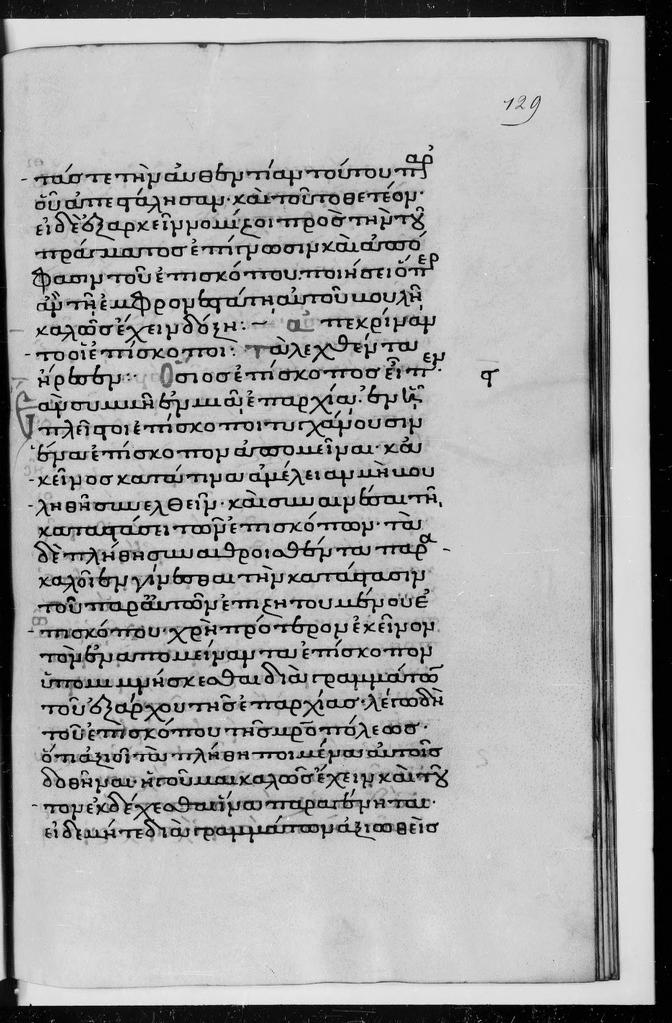 129
τάς τε τὴν αὐθεντίαν τούτου παρ
οὗ ἀπεστάλησαν· καὶ τοῦτο θετέον·
εἰ δὲ ἐξαρκεῖν νομίζοι πρὸς τὴν τοῦ
πράγματος ἐπίγνωσιν καὶ ἀπό
φασιν τοῦ ἐπισκόπου ποιήσει ὅπερ
ἂν τῇ ἐμφρονεστάτῃ αὐτοῦ βουλῇ
καλῶς ἔχειν δόξῃ:~ ἀπεκρίναν
το οἱ ἐπίσκοποι: τὰ λεχθέντα
ἤρεσεν: Ὅσιος ἐπίσκοπος εἶπεν
ς
ἐὰν συμβῇ ἐν μιᾷ ἐπαρχίᾳ ἐν ᾗ
πλεῖστοι ἐπίσκοποι τυγχάνουσιν
ἕνα ἐπίσκοπον ἀπομεῖναι· κἀ
κεῖνος κατά τινα ἀμέλειαν μὴ βου
ληθῇ συνελθεῖν· καὶ συναινέσαι τῇ
καταστάσει τῶν ἐπισκόπων· τὰ
δὲ πλήθη συναθροισθέντα παρα
καλοῖεν γίνεσθαι τὴν κατάστασιν
τοῦ παρ' αὐτῶν ἐπιζητουμένου ἐ
πισκόπου· χρὴ πρότερον ἐκεῖνον
τὸν ἐναπομείναντα ἐπίσκοπον
ὑπομιμνήσκεσθαι διὰ γραμμάτων
τοῦ ἐξάρχου τῆς ἐπαρχίας· λέγω δὴ
τοῦ ἐπισκόπου τῆς μροπόλεως·
ὅτι ἀξιοῖ τὰ πλήθη ποιμένα αὐτοῖς
δοθῆναι· ἡγοῦμαι καλῶς ἔχειν καὶ τοῦ
τον ἐκδέχεσθαι ἵνα παραγένηται·
εἰ δὲ μήτε διὰ γραμμάτων ἀξιωθεὶς